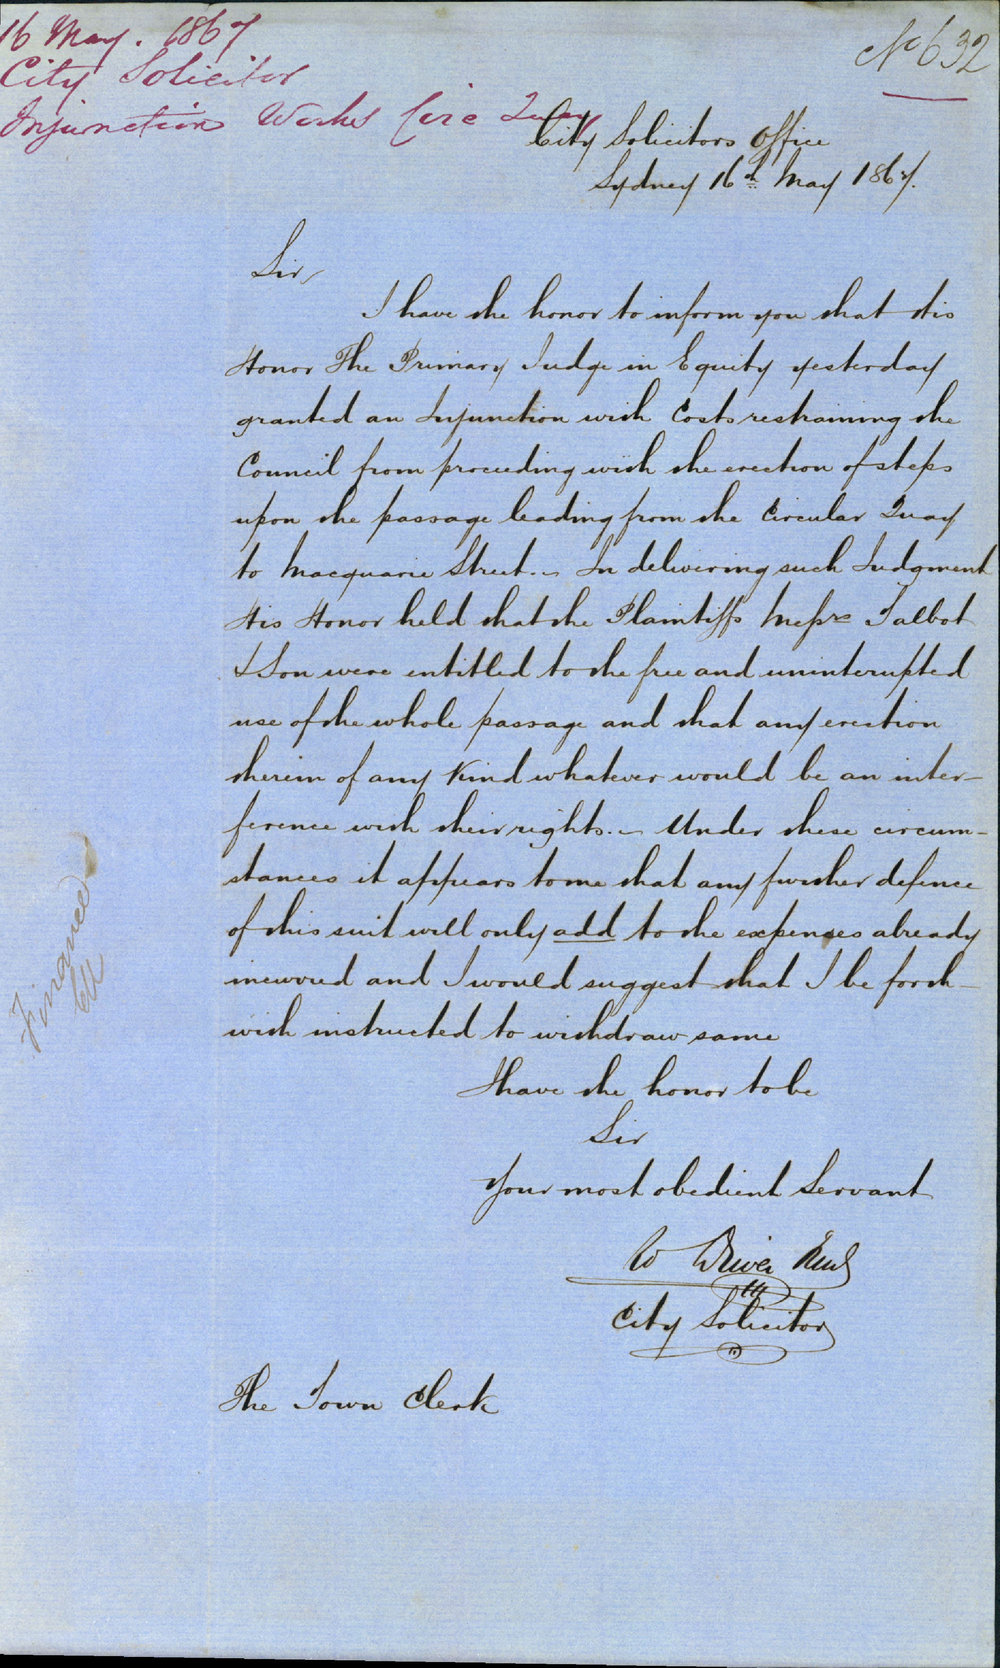 16 May. 1867
City Solicitor
Injunction Works Circ Quay
No 632
City Solicitors Office
Sydney 16th May 1867.
Sir,
I have the honor to inform you that His
Honor The Primary Judge in Equity yesterday
granted an Injunction with Costs restraining the
Council from proceeding with the erection of steps
upon the passage leading from the Circular Quay
to Macquarie Street. – In delivering such Judgment
His Honor held that the Plaintiffs Messrs Talbot
& Son were entitled to the free and uninterrupted
use of the whole passage and that any erection
therein of any kind whatever would be an inter-
ference with their rights. – Under these circum-
stances it appears to me that any further defence
of this suit will only add to the expenses already
incurred and I would suggest that I be forth-
with instructed to withdraw same
I have the honor to be
Sir
Your most obedient Servant
W Driver Junr
City Solicitor
The Town Clerk
Finance